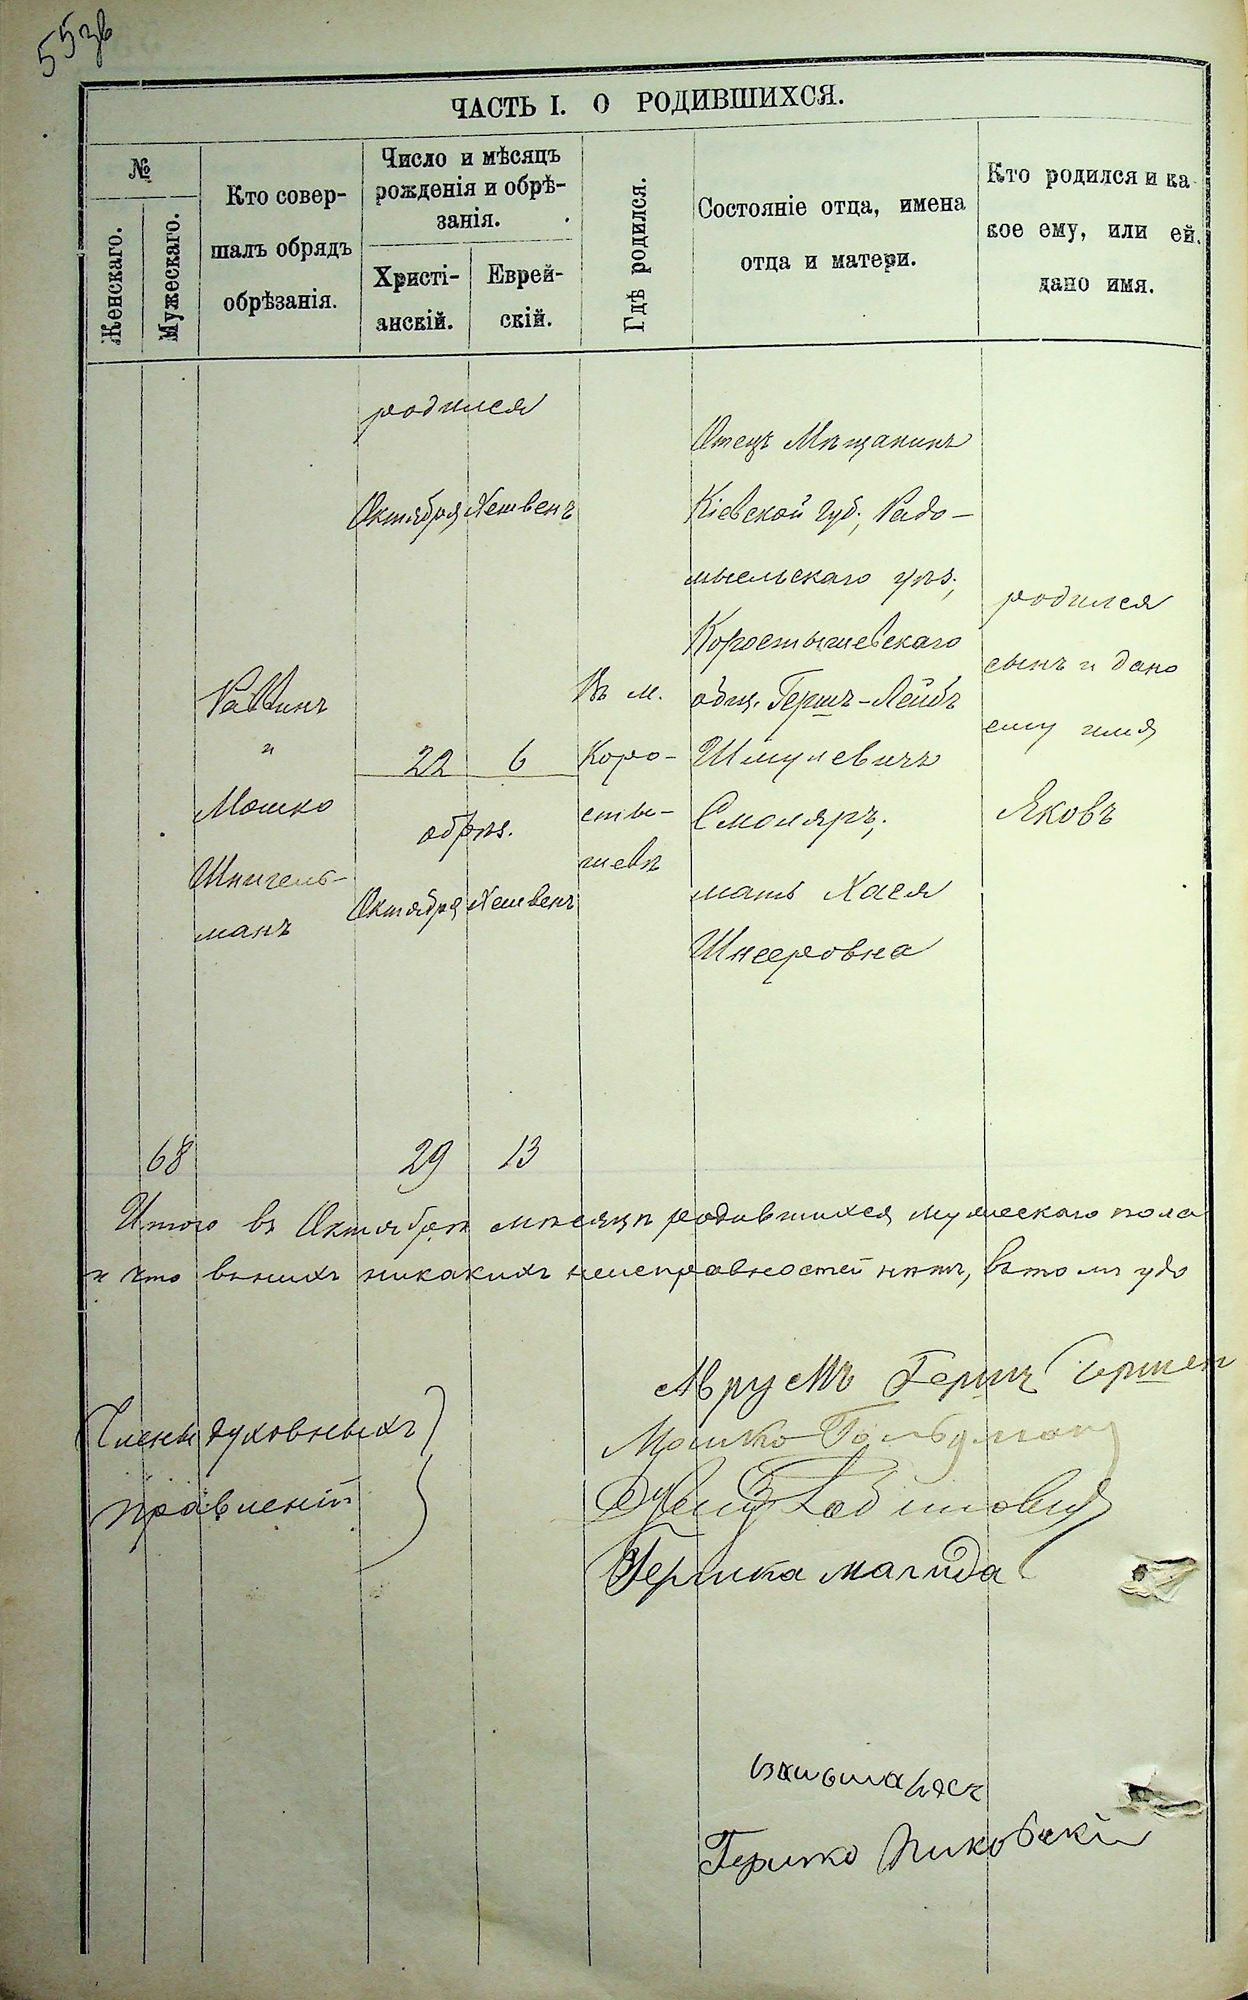 55 зв
ЧАСТЬ I. О РОДИВШИХСЯ.
№
Женскаго.
Мужескаго.
Кто совер-
шалъ обрядъ
обрѣзанія.
Число и мѣсяцъ
рожденія и обрѣ-
занія.
Христі-
анскій.
Еврей-
скій.
Гдѣ родился.
Состояніе отца, имена
отца и матери.
Кто родился и ка
кое ему, или ей.
дано имя.
68
Раввинъ
и
Мошко
Шпигель-
манъ
родился
Октября Хешвенъ
22 6
обрѣз.
Октября Хешвенъ
29 13
Въ м.
Коро-
сты-
шевѣ
Отецъ Мѣщанинъ
Кіевской губ., Радо-
мысльскаго уѣз.,
Коростышевскаго
общ. Гершъ-Лейбъ
Шмулевичъ
Смоляръ,
мать Хася
Шнееровна
родился
сынъ и дано
ему имя
Яковъ
Итого въ Октябрѣ мѣсяцѣ родившихся мужескаго пола
и что въ нихъ никакихъ неисправностей нѣтъ, въ томъ удо
Члены духовныхъ
правленій
Аврумъ Герш
Мошко Гольдман
Рабиновичъ
Гершка магида
Гершко